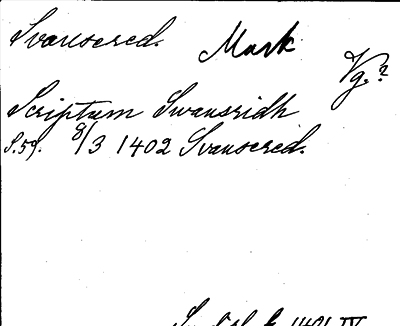 Svansered. Mark Vg.?
Scriptum Swansridh
S.59. 8/3 1402 Svansered.